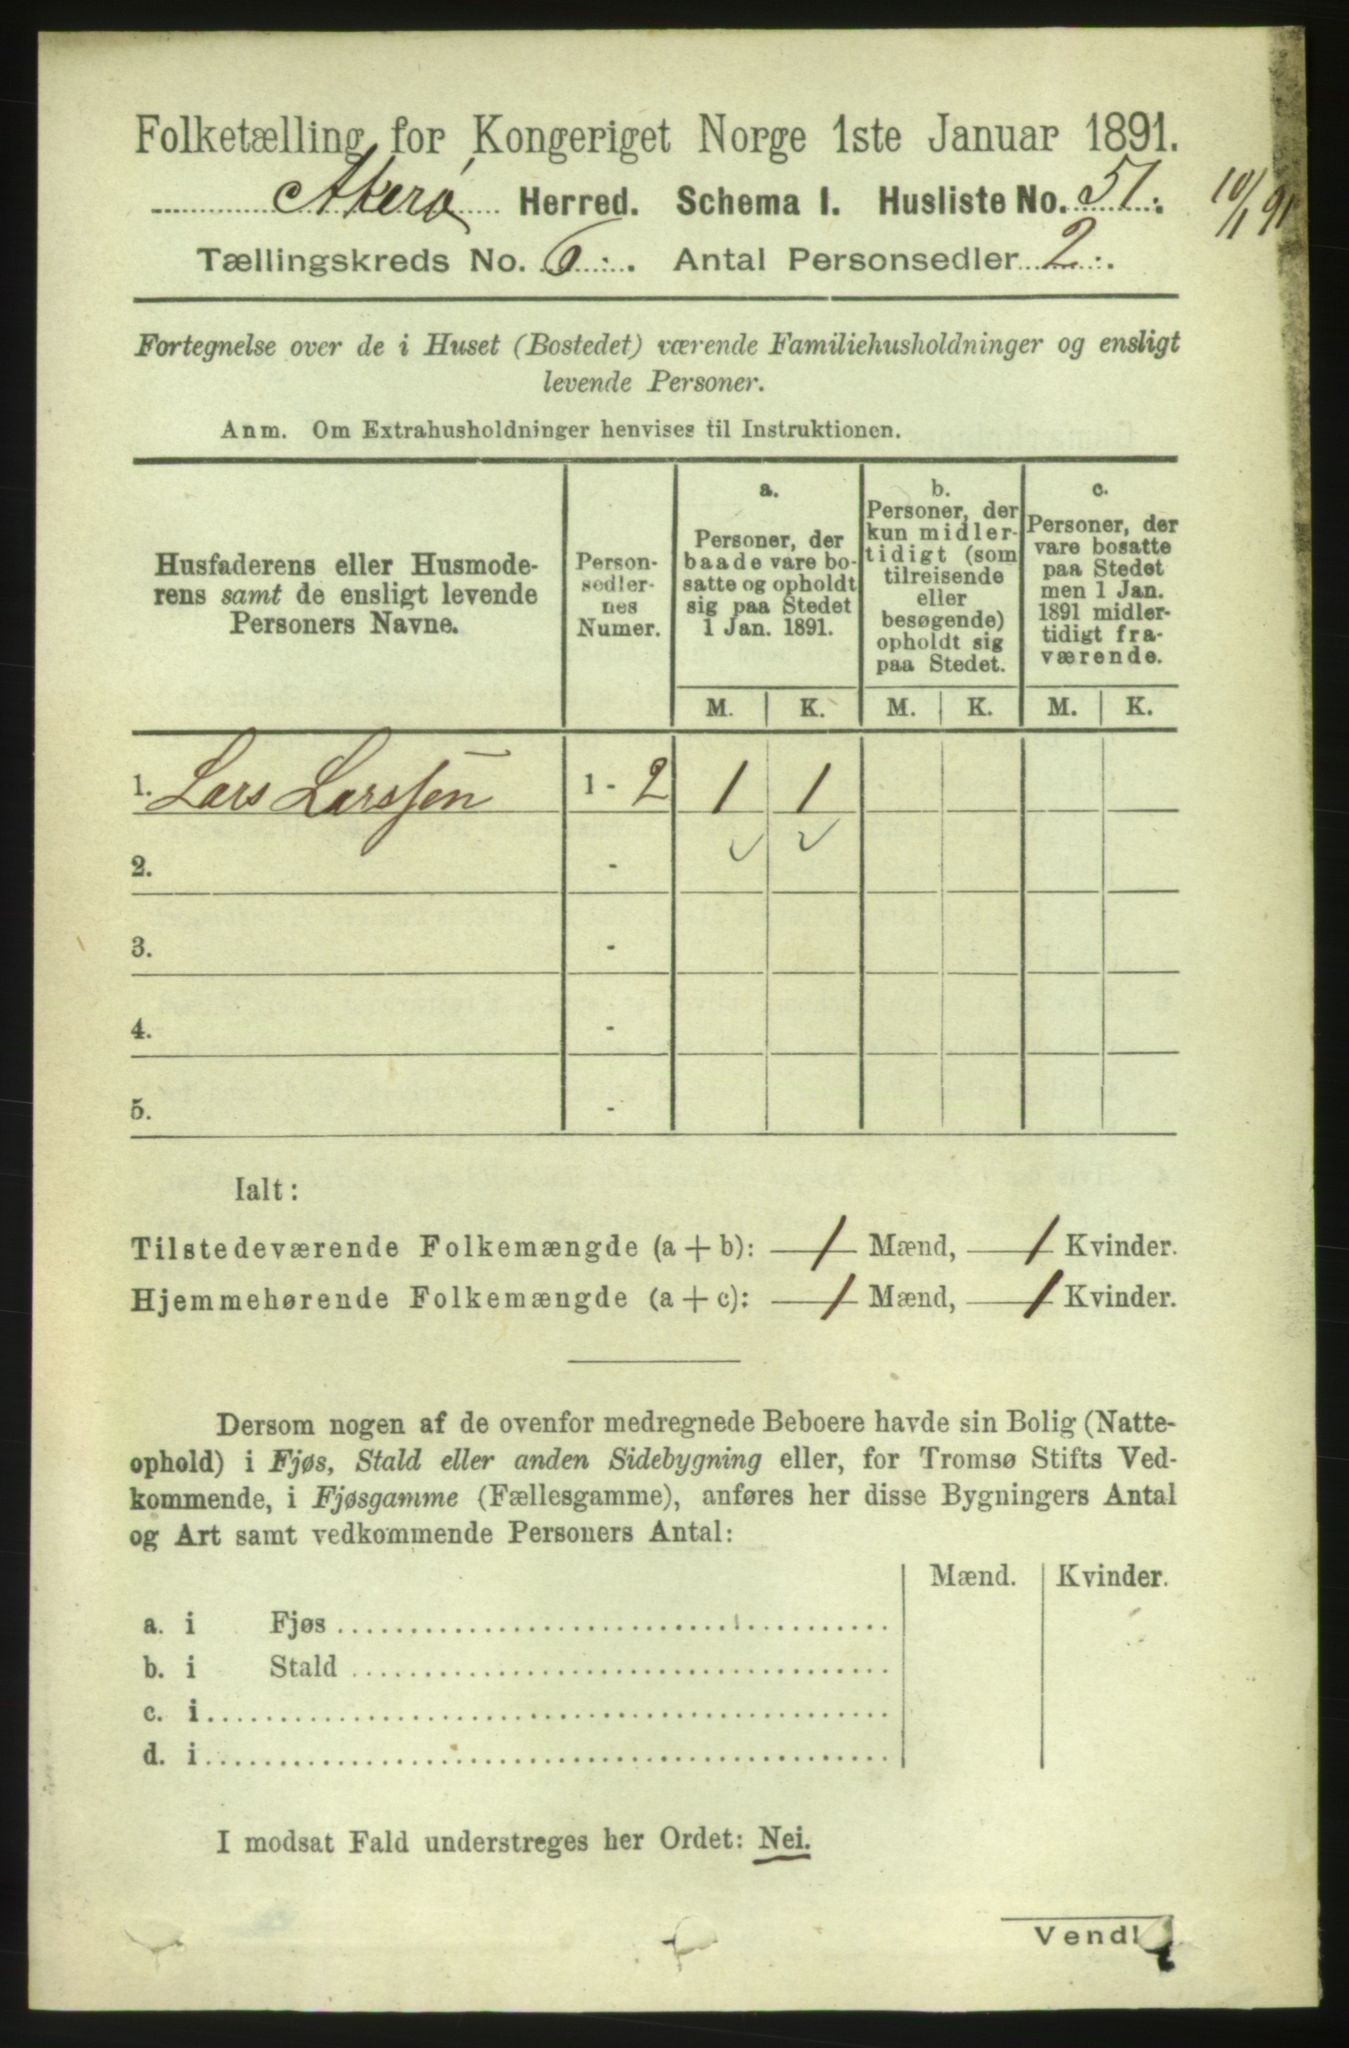 Folketælling for Kongeriget Norge 1ste Januar 1891.
Akerø Herred. Schema I. Husliste No. 51.
10/1 91
Tællingskreds No. 6. Antal Personsedler 2.
Fortegnelse over de i Huset (Bostedet) værende Familiehusholdninger og ensligt
levende Personer.
Anm. Om Extrahusholdninger henvises til Instruktionen.
Husfaderens eller Husmode-
rens samt de ensligt levende
Personers Navne.
Person-
sedler-
nes
Numer.
a.
Personer, der
baade vare bo-
satte og opholdt
sig paa Stedet
1 Jan. 1891.
b.
Personer, der
kun midler-
tidigt (som
tilreisende
eller
besøgende)
opholdt sig
paa Stedet.
c.
Personer, der
vare bosatte
paa Stedet
men 1 Jan.
1891 midler-
tidigt fra-
værende.
M. K. M. K. M. K.
1. Lars Larssen 1 - 2 1 1
2. -
3. -
4. -
5. -
Ialt:
Tilstedeværende Folkemængde (a + b): 1 Mænd, 1 Kvinder.
Hjemmehørende Folkemængde (a + c): 1 Mænd, 1 Kvinder.
Dersom nogen af de ovenfor medregnede Beboere havde sin Bolig (Natte-
ophold) i Fjøs, Stald eller anden Sidebygning eller, for Tromsø Stifts Ved-
kommende, i Fjøsgamme (Fællesgamme), anføres her disse Bygningers Antal
og Art samt vedkommende Personers Antal:
Mænd. Kvinder.
a. i Fjøs
b. i Stald
c. i
d. i
I modsat Fald understreges her Ordet: Nei.
Vend!